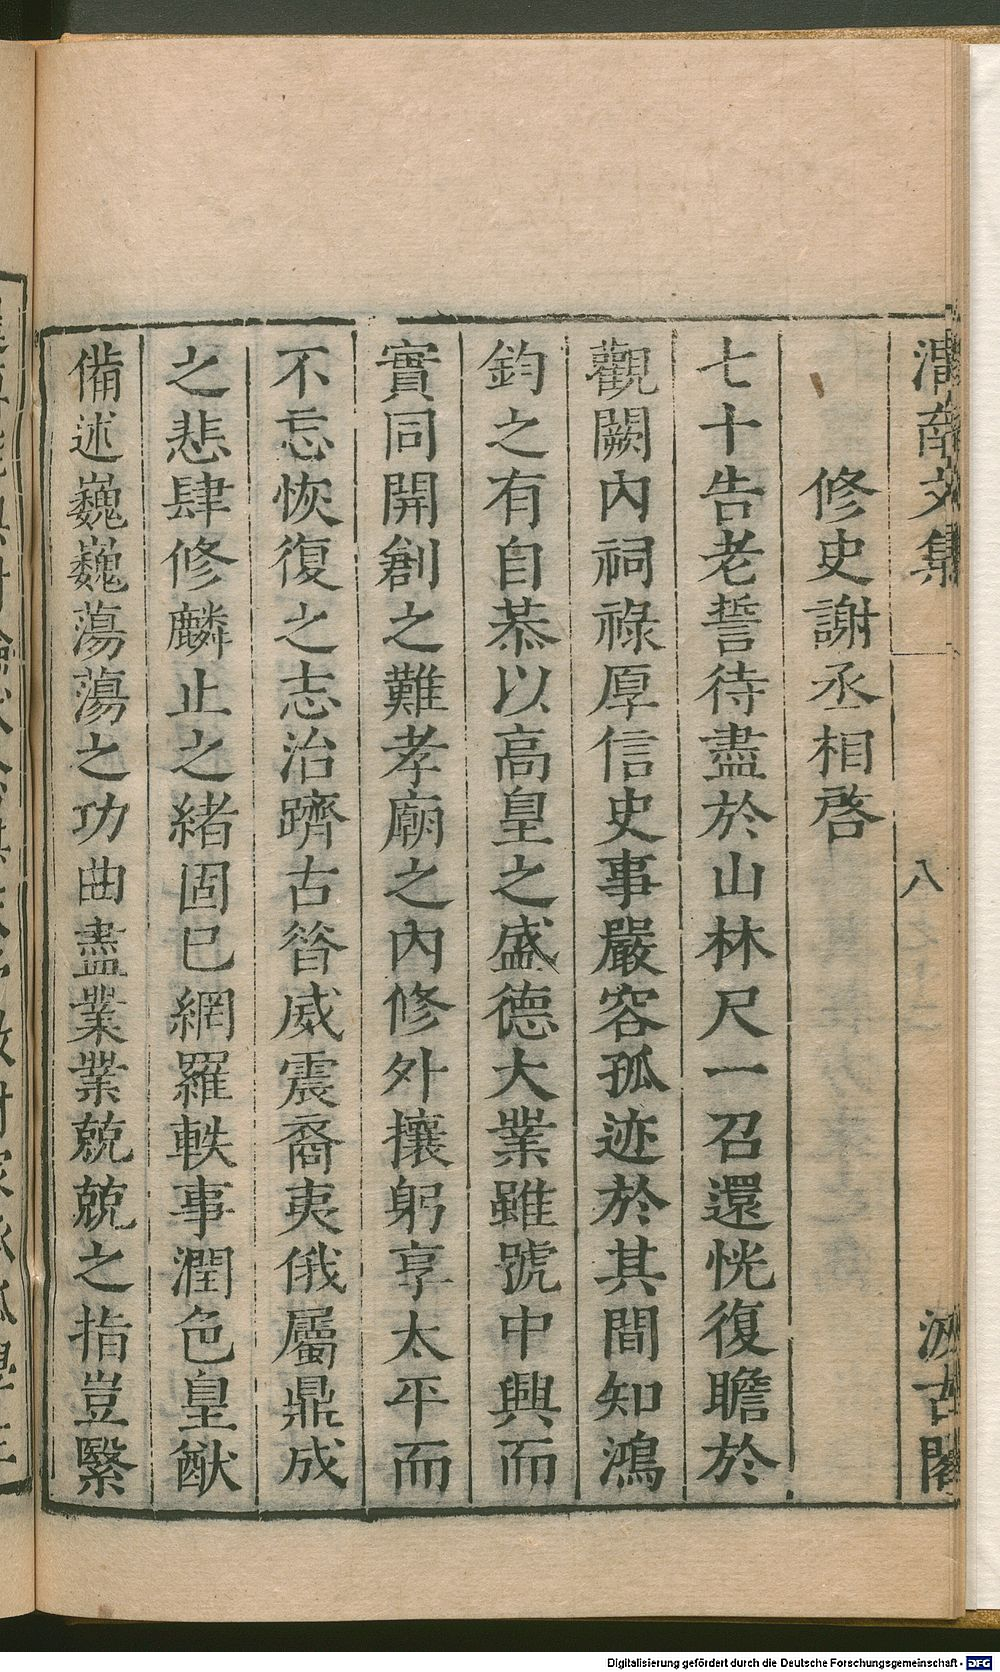 渭南文集
八
汲古閣
修史謝丞相啓
七十告老誓待盡於山林尺一召還恍復瞻於
觀闕內祠祿厚信史事嚴容孤迹於其間知鴻
鈞之有自恭以高皇之盛德大業雖號中興而
實同開創之難孝廟之內修外攘躬享太平而
不忘恢復之志治躋古昝威震裔夷俄屬鼎成
之悲肆修麟止之緒固已網羅軼事潤色皇猷
備述巍巍蕩蕩之功曲盡業業兢兢之指豈繄
Digitalisierung gefördert durch die Deutsche Forschungsgemeinschaft - DFG